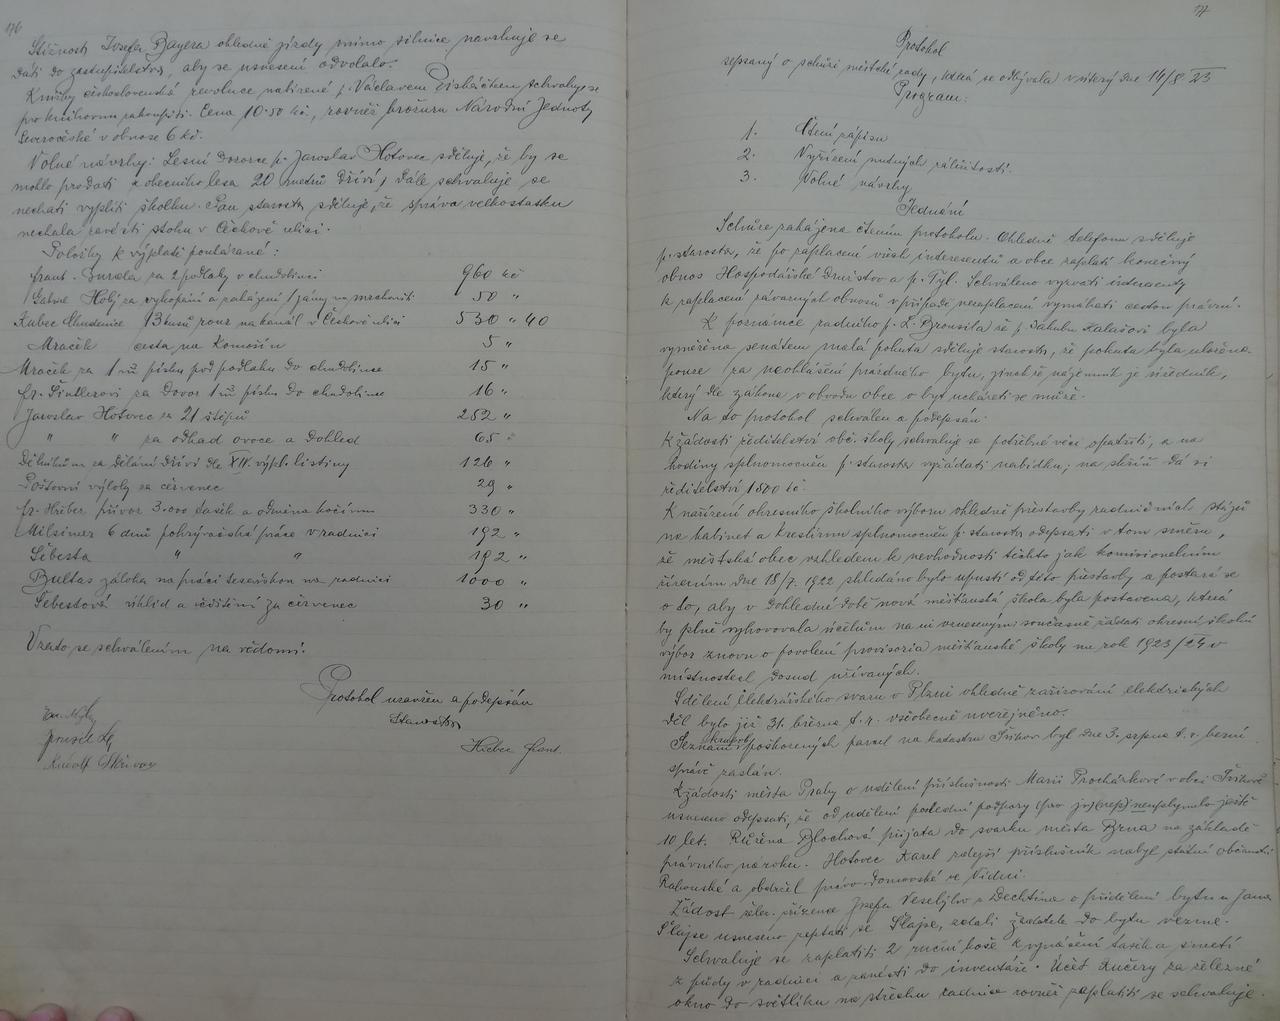 176
Stížnost Josefa Bayera ohledně jízdy mimo silnice navrhuje se
dáti do zastupitelstva, aby se usnesení odvolalo.
Knihy československá revoluce nabízené p. Václavem schvaluje se
pro knihovnu zakoupiti. Cena 10·50 kč, rovněž brožura Národní Jednoty
Severočeské v obnose 6 kč.
Volné návrhy: Lesní dozorce p. Jaroslav Hotovec sděluje, že by se
mohlo prodati z obecního lesa 20 metrů dříví, dále schvaluje se
nechati vyplíti školku. Pan starosta sděluje, že správa velkostatku
nechala zavésti stoku v Čechově ulici.
Položky k výplatě poukázané:
Frant. za 2 podlahy v chudobinci 960 kč
Holý za vykopání a zaházení jámy na mrchovišti 50 "
Kubec Chudenice 13 kusů rour na kanál v Čechově ulici 530 " 40
Mraček cesta na Komošín 5 "
Mraček za 1 m³ písku pod podlahu do chudobince 15 "
Fr. za dovoz 1 m³ písku do chudobince 16 "
Jaroslav Hotovec za 21 štěpů 252 "
" " za odhad ovoce a dohled 65 "
Dělníkům za dělání dříví dle XIV. výpl. listiny 126 "
Poštovní výlohy za červenec 29 "
Fr. Hřeber přívoz 3.000 tašek a odměna kočímu 330 "
Milsimer 6 dnů pokrývačská práce v radnici 192 "
Šebesta " " 192 "
Bultas záloha na práci tesařskou na radnici 1000 "
Šebestová úklid a čištění za červenec 30 "
Vzato se schválením na vědomí.
Protokol uzavřen a podepsán
Starosta
Hřeber Frant.
Rudolf Skřivan
177
Protokol
sepsaný o schůzi městské rady, která se odbývala v úterý dne 14/8. 23
Program:
1. Čtení zápisu
2. Vyřízení nutných záležitostí.
3. Volné návrhy
Jednání
Schůze zahájena čtením protokolu. Ohledně telefonu sděluje
p. starosta, že po zaplacení všech interesentů a obce zaplatí konečný
obnos Hospodářské Družstvo a p. Tyl. Schváleno vyzvati interesenty
k zaplacení závazných obnosů v případě nezaplacení vymáhati cestou právní.
K poznámce radního p. L. Brousila že p. Jakubu Kalašovi byla
vyměřena senátem malá pokuta sděluje starosta, že pokuta byla uložena
pouze za neohlášení prázdného bytu, jinak že nájemník je úředník,
který dle zákona v obvodu obce o byt ucházeti se může.
Na to protokol schválen a podepsán.
K žádosti ředitelství obč. školy schvaluje se potřebné věci opatřiti, a na
hodiny splnomocněn p. starosta vyžádati nabídku; na skříň dá si
ředitelství 1500 kč.
K nařízení okresního školního výboru ohledně přestavby radničních
na kabinet a kreslírnu splnomocněn p. starosta odepsati v tom směru,
že městská obec vzhledem k nevhodnosti těchto jak komisionelním
šízením dne 18/7. 1922 shledáno bylo upustí od této přestavby a postará se
o to, aby v dohledné době nová měšťanská škola byla postavena, která
by plně vyhovovala účelům na ni vzneseným; současně žádati okresní školní
výbor znovu o povolení provisoria měšťanské školy na rok 1923/24 v
místnostech dosud užívaných.
Sdělení Elektrářského svazu v Plzni ohledně zařizování elektrických
děl bylo již 31. března t. r. všeobecně uveřejněno.
Seznam poškozených parcel na katastru Švihov byl dne 3. srpna t. r. berní
správě zaslán.
K žádosti města Prahy o udělení příslušnosti Marii Procházkové v obci Švihově
usneseno odepsati, že od udělení poslední podpory neuplynulo ještě
10 let. Růžena Blochová přijata do svazku města Brna na základě
právního nároku. Hotovec Karel zdejší příslušník nabyl státní občanství
Rakouské a obdržel právo domovské ve Vídni.
Žádost žel. zřízence Josefa Veselého z Dechtína o přidělení bytu u Jana
Šlajse usneseno zeptati se Šlajse, zdali žadatele do bytu vezme.
Schvaluje se zaplatiti 2 ruční koše k vynášení tašek a smetí
z půdy v radnici a zanésti do inventáře. Účet Kučery za železné
okno do světlíku na střechu radnice rovněž zaplatiti se schvaluje.